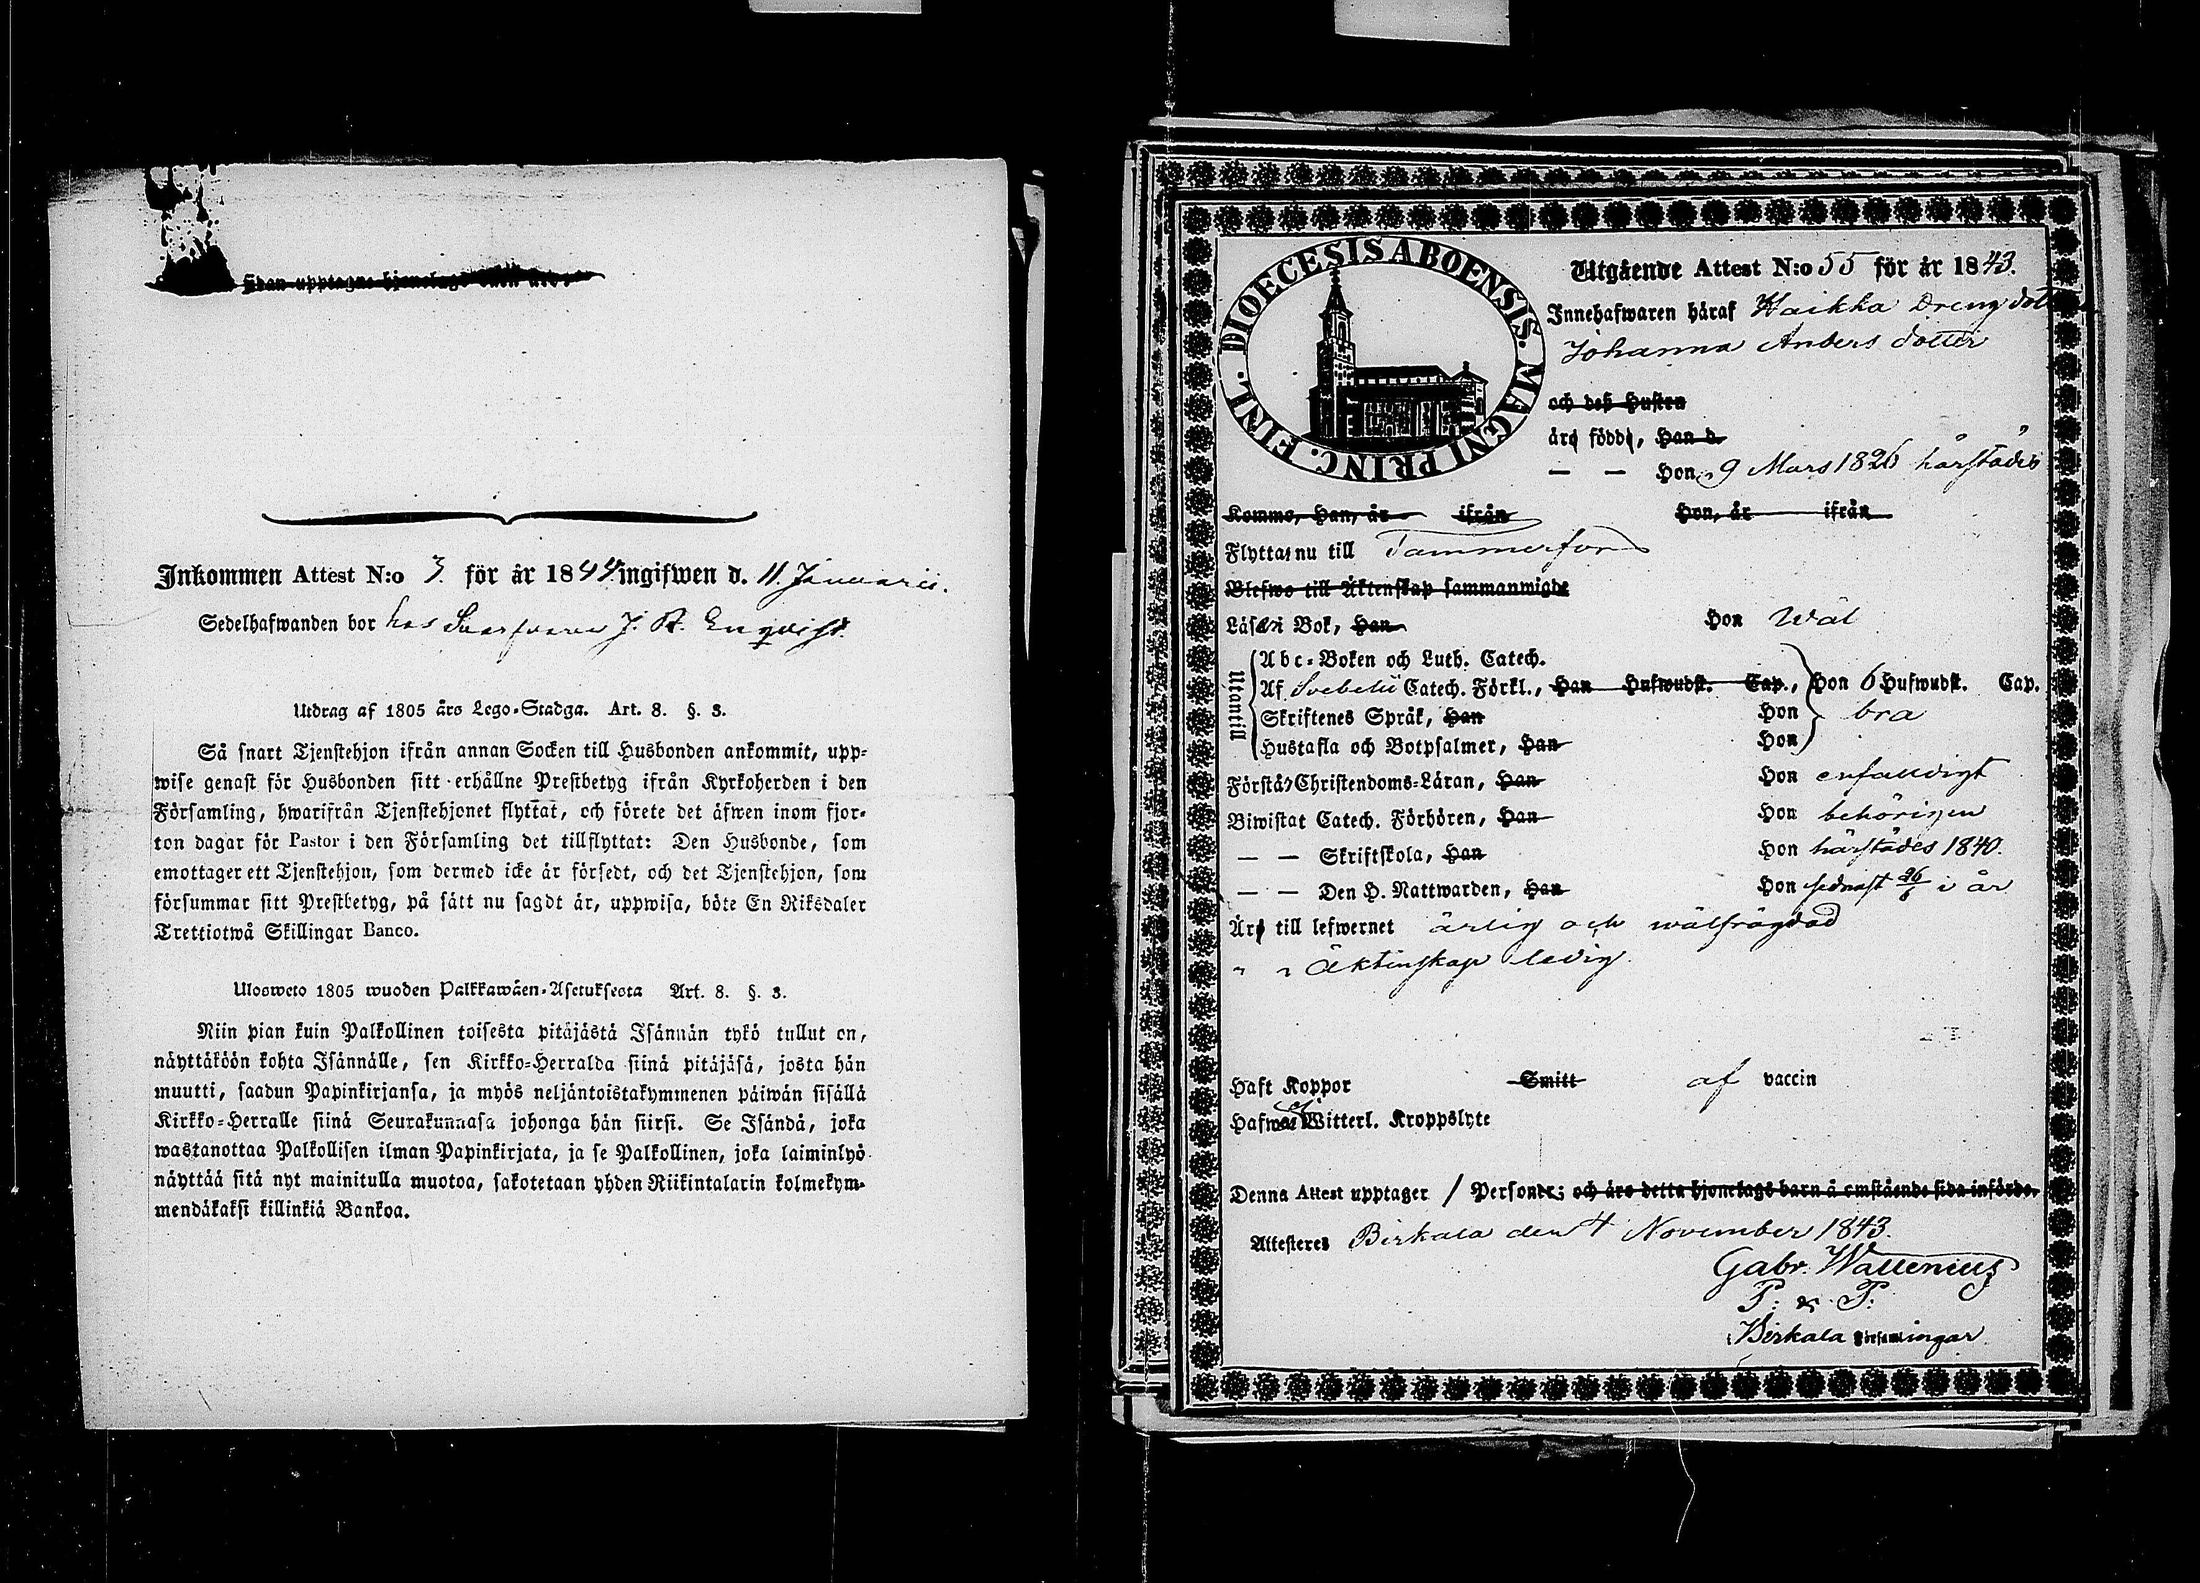 Inkommen Attest N:o 3. för år 1844 ingifwen d. 11. Januarii.
Sedelhafwanden bor hos Swarfvaren J. R. Enqvist.
Utdrag af 1805 års Lego-Stadga. Art. 8. §. 3.
Så snart Tjenstehjon ifrån annan Socken till Husbonden ankommit, upp-
wise genast för Husbonden sitt erhållne Prestbetyg ifrån Kyrkoherden i den
Församling, hwarifrån Tjenstehjonet flyttat, och förete det äfwen inom fjor-
ton dagar för Pastor i den Församling det tillflyttat: Den Husbonde, som
emottager ett Tjenstehjon, som dermed icke är försedt, och det Tjenstehjon, som
försummar sitt Prestbetyg, på sätt nu sagdt är, uppwisa, böte En Riksdaler
Trettiotwå Skillingar Banco.
Ulosweto 1805 wuoden Palkkawäen-Asetuksesta Art. 8. §. 3.
Niin pian kuin Palkollinen toisesta pitäjästä Isännän tykö tullut on,
näyttäköön kohta Isännälle, sen Kirkko-Herralda siinä pitäjäsä, josta hän
muutti, saadun Papinkirjansa, ja myös neljäntoistakymmenen päiwän sisällä
Kirkko-Herralle siinä Seurakunnasa johonga hän siirsi. Se Isändä, joka
wastanottaa Palkollisen ilman Papinkirjata, ja se Palkollinen, joka laiminlyö
näyttää sitä nyt mainitulla muotoa, sakotetaan yhden Riikintalarin kolmekym-
mendäkaksi killinkiä Bankoa.
DIOECESIS ABOENSIS. MAGNI PRINC. FINL.
Utgående Attest N:o 55 för år 1843.
Innehafwaren häraf Haikka Dreng dott
Johanna Anders dotter
och deß Hustru
äro födde, Han d.
— — Hon 9 Mars 1826 härstädes
Komme, Han, år ifrån Hon, år ifrån
Flyttar nu till Tammerfors
Blefwo till Äktenskap sammanwigde
Läser i Bok, Han Hon wäl
Utantill
Abc-Boken och Luth. Catech.
Af Svebelii Catech. Förkl., Han Hufwudst. Cap., Hon 6 Hufwudst. Cap.
Skriftenes Språk, Han Hon bra
Hustafla och Botpsalmer, Han Hon
Förstår Christendoms-Läran, Han Hon enfaldigt
Biwistat Catech. Förhören, Han Hon behörigen
— — Skriftskola, Han Hon härstädes 1840.
— — Den H. Nattwarden, Han Hon sednast 26/ i år
Äro till lefwernet ärlig och wälfrägdad
" " Äktenskap ledig.
Haft Koppor Smitt af vaccin
Hafwa ej Witterl. Kroppslyte
Denna Attest upptager 1 Personer; och äro detta hjonelags barn å omstående sida införde.
Attesteres Birkala den 4 November 1843.
Gabr. Wallenius
P: & P:
Birkala Församlingar